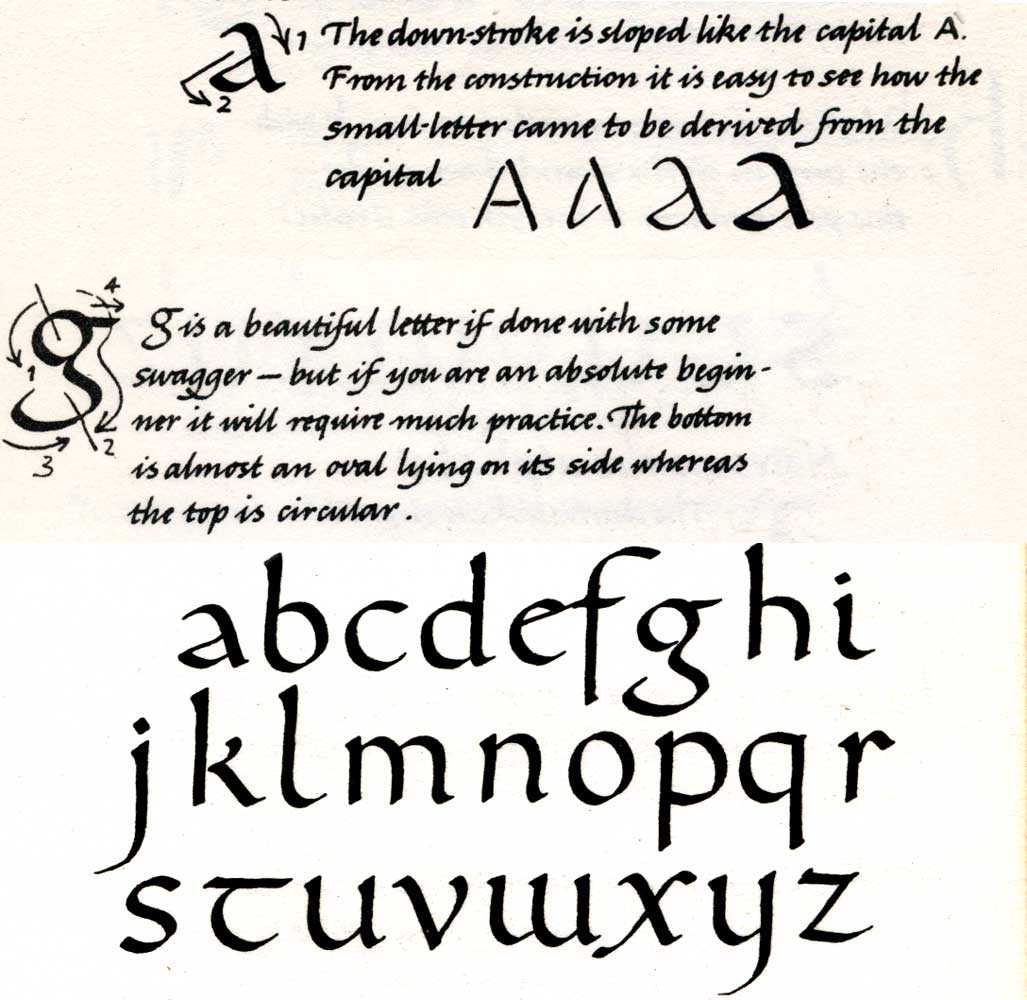 a 1 2 The down-stroke is sloped like the capital A.
From the construction it is easy to see how the
small-letter came to be derived from the
capital A a a a
g 1 2 3 4 g is a beautiful letter if done with some
swagger – but if you are an absolute begin-
ner it will require much practice. The bottom
is almost an oval lying on its side whereas
the top is circular.
abcdefghi
jklmnopqr
stuvwxyz